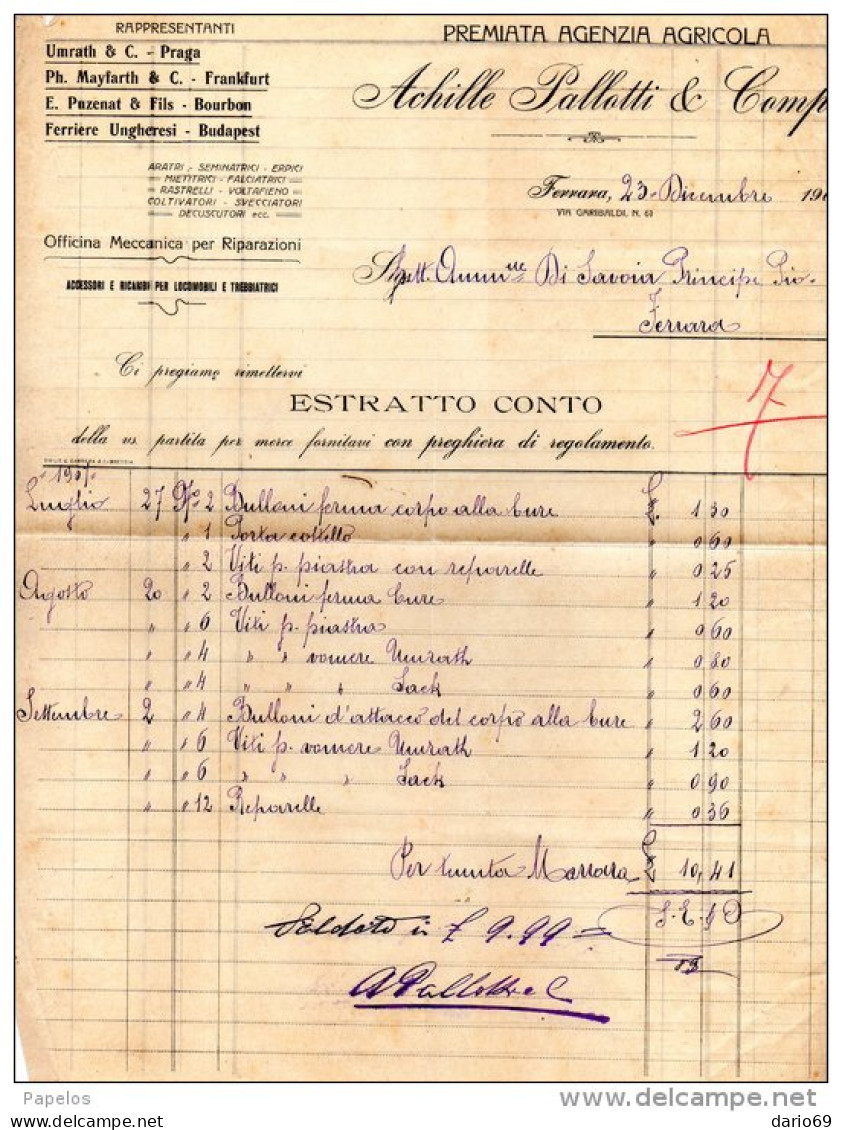 RAPPRESENTANTI
Umrath & C. - Praga
Ph. Mayfarth & C. - Frankfurt
E. Puzenat & Fils - Bourbon
Ferriere Ungheresi - Budapest
ARATRI - SEMINATRICI - ERPICI
MIETITRICI - FALCIATRICI
RASTRELLI - VOLTAFIENO
COLTIVATORI - SVECCIATORI
DECUSCUTORI ecc.
Officina Meccanica per Riparazioni
ACCESSORI E RICAMBI PER LOCOMOBILI E TREBBIATRICI
PREMIATA AGENZIA AGRICOLA
Achille Pallotti & Comp
Ferrara, 23 Dicembre 190
VIA GARIBALDI, N. 61
Spett. Ammne Di Savoia Principe Pio
Ferrara
Ci pregiamo rimettervi
ESTRATTO CONTO
7
della vs. partita per merce fornitavi con preghiera di regolamento.
1907
Luglio 27 No 2 Bulloni ferma corpo alla bure £ 1 30
" 1 Porta coltello " 0 60
" 2 Viti p. piastra con reparelle " 0 25
Agosto 20 " 2 Bulloni ferma bure " 1 20
" " 6 Viti p. piastra " 0 60
" " 4 " " vomere Umrath " 0 80
" " 4 " " " Sack " 0 60
Settembre 2 " 4 Bulloni d'attacco del corpo alla bure " 2 60
" " 6 Viti p. vomere Umrath " 1 20
" " 6 " " " Sack " 0 90
" " 12 Reparelle " 0 36
Per tenuta Marrara £ 10,41
S. E. & O
Saldato in £ 9.99 =
A Pallotti e C
Papelos
www.delcampe.net
dario69